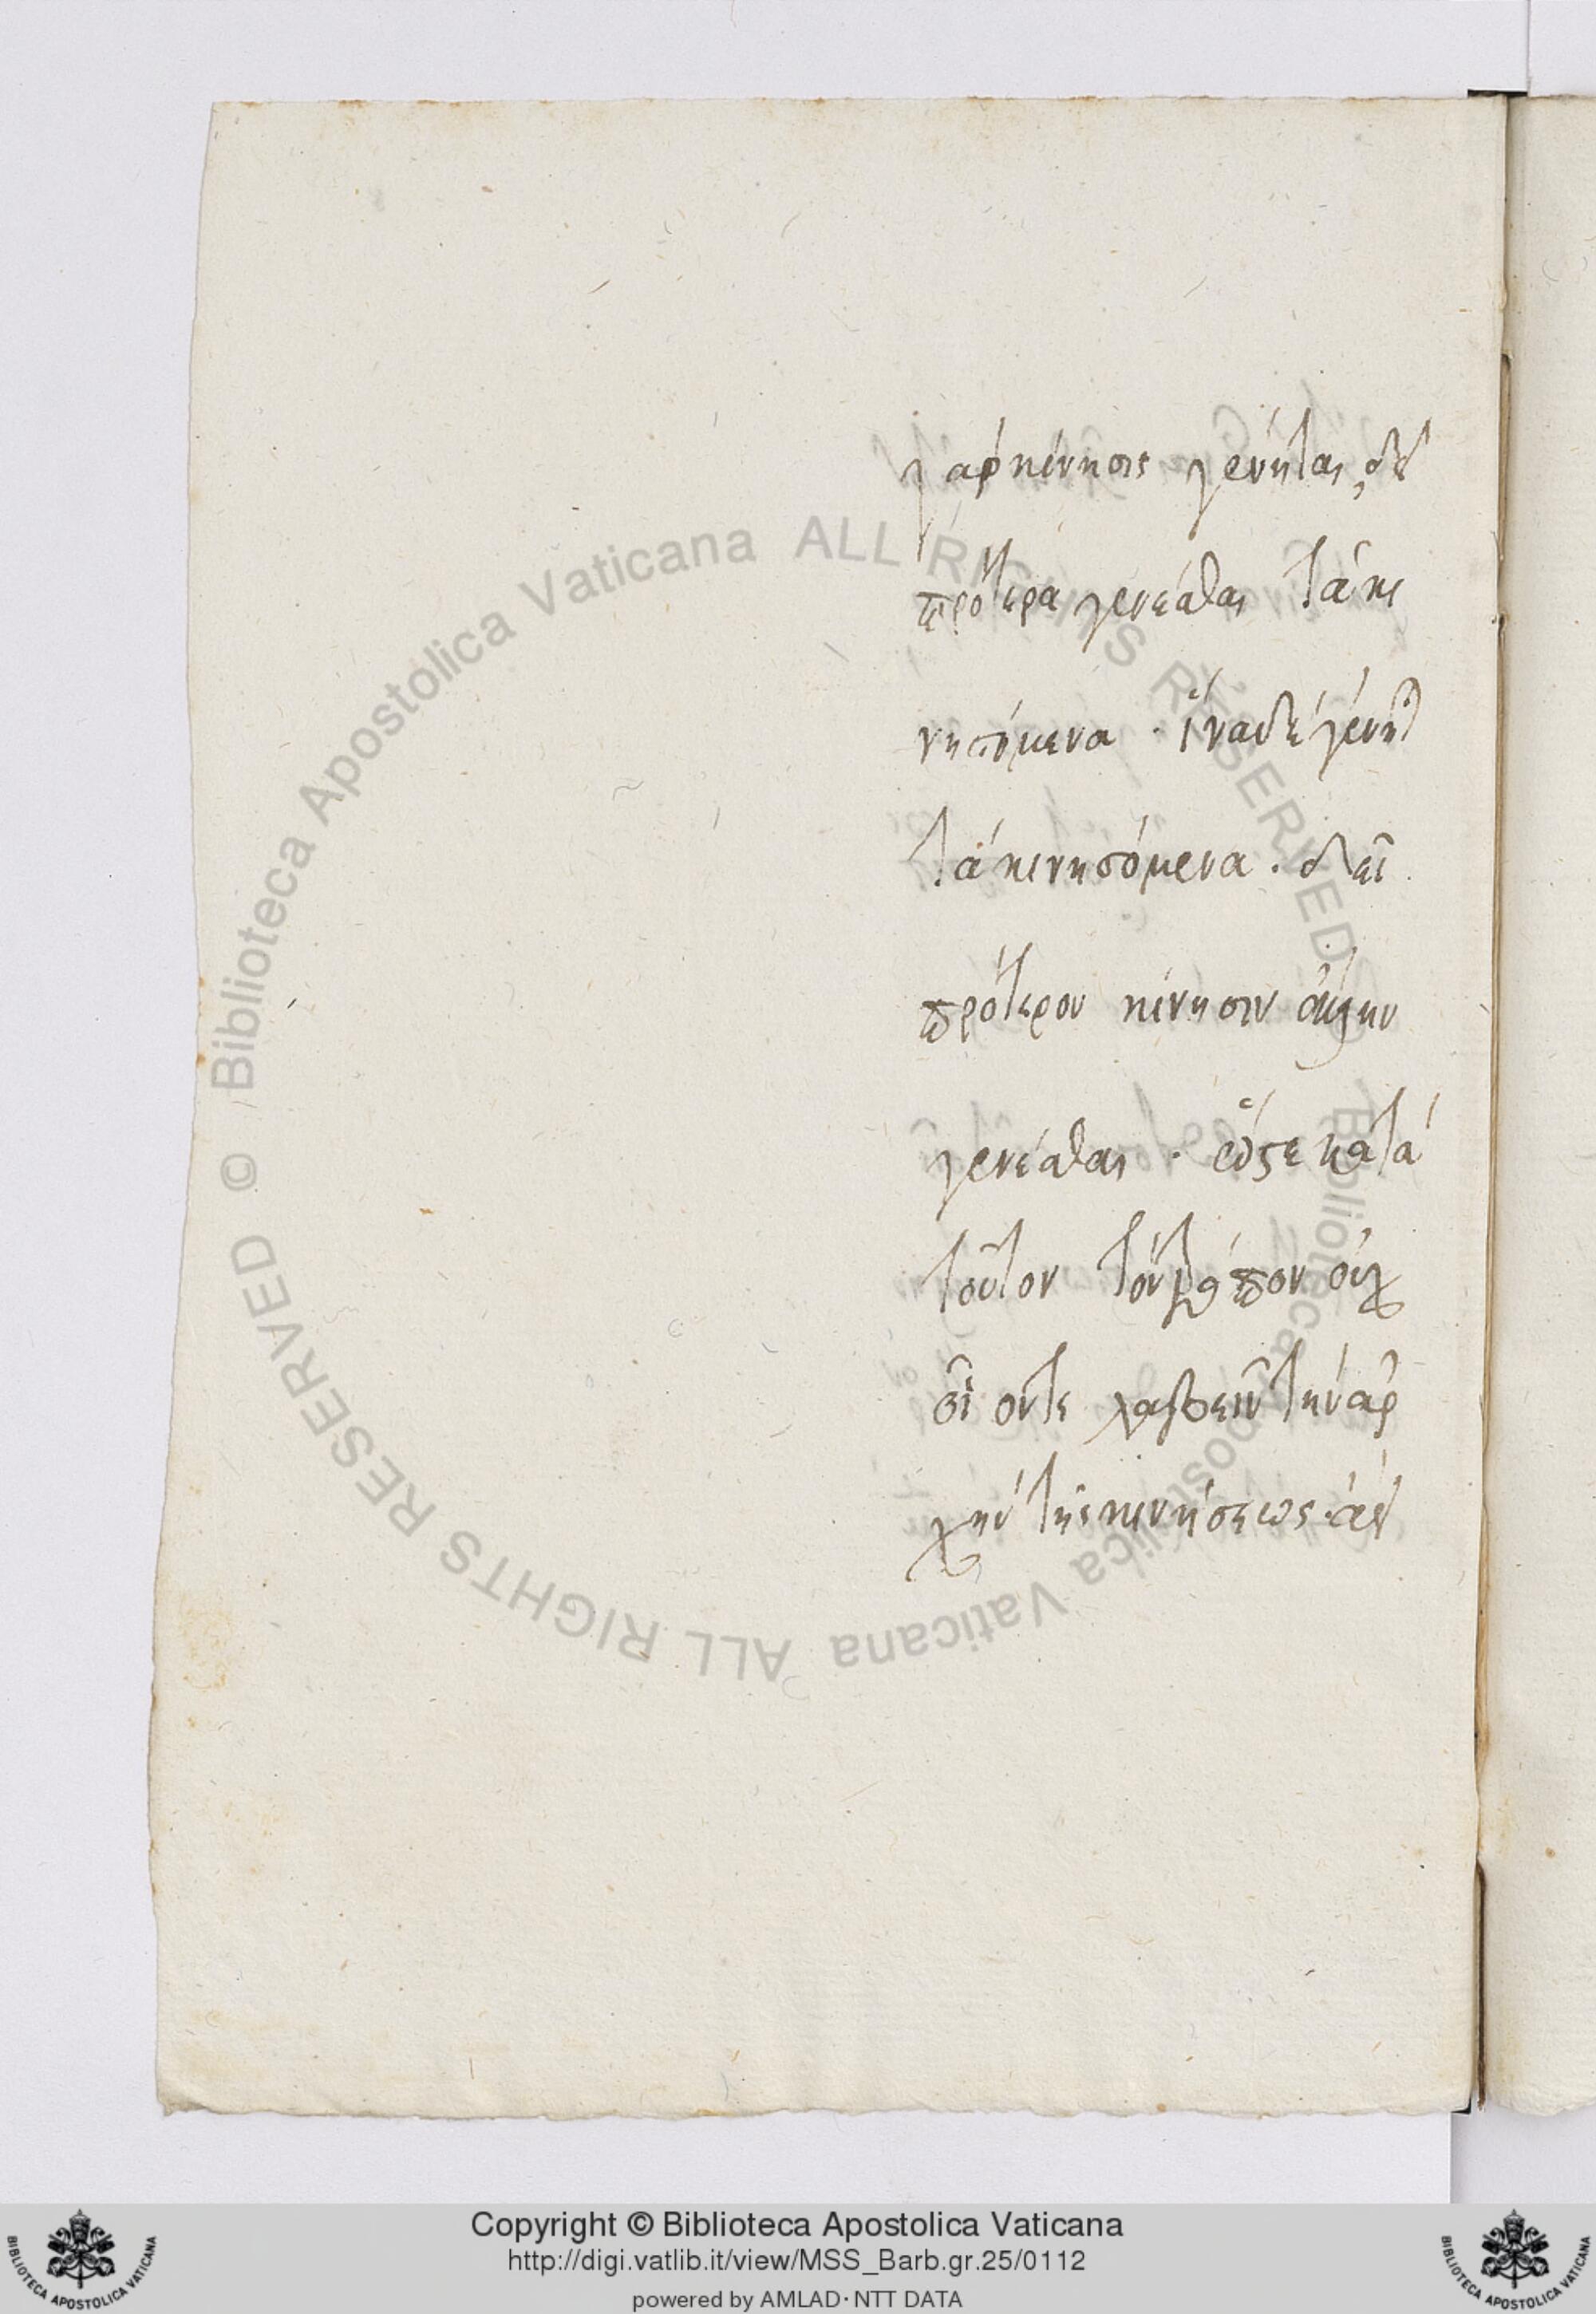 γὰρ κίνησις γένηται, δεῖ
πρότερα γενέσθαι τὰ κι
νησόμενα · ἵνα δὲ γένηται
τὰ κινησόμενα · δεῖ
πρότερον κίνησιν ἄλλην
γενέσθαι · ὥστε κατὰ
τοῦτον τὸν τρόπον οὐχ
οἷόν τε λαβεῖν τὴν ἀρ
χὴν τῆς κινήσεως ·
© Biblioteca Apostolica Vaticana ALL RIGHTS RESERVED
© Biblioteca Apostolica Vaticana ALL RIGHTS RESERVED
Copyright © Biblioteca Apostolica Vaticana
http://digi.vatlib.it/view/MSS_Barb.gr.25/0112
powered by AMLAD·NTT DATA
BIBLIOTECA APOSTOLICA VATICANA
BIBLIOTECA APOSTOLICA VATICANA